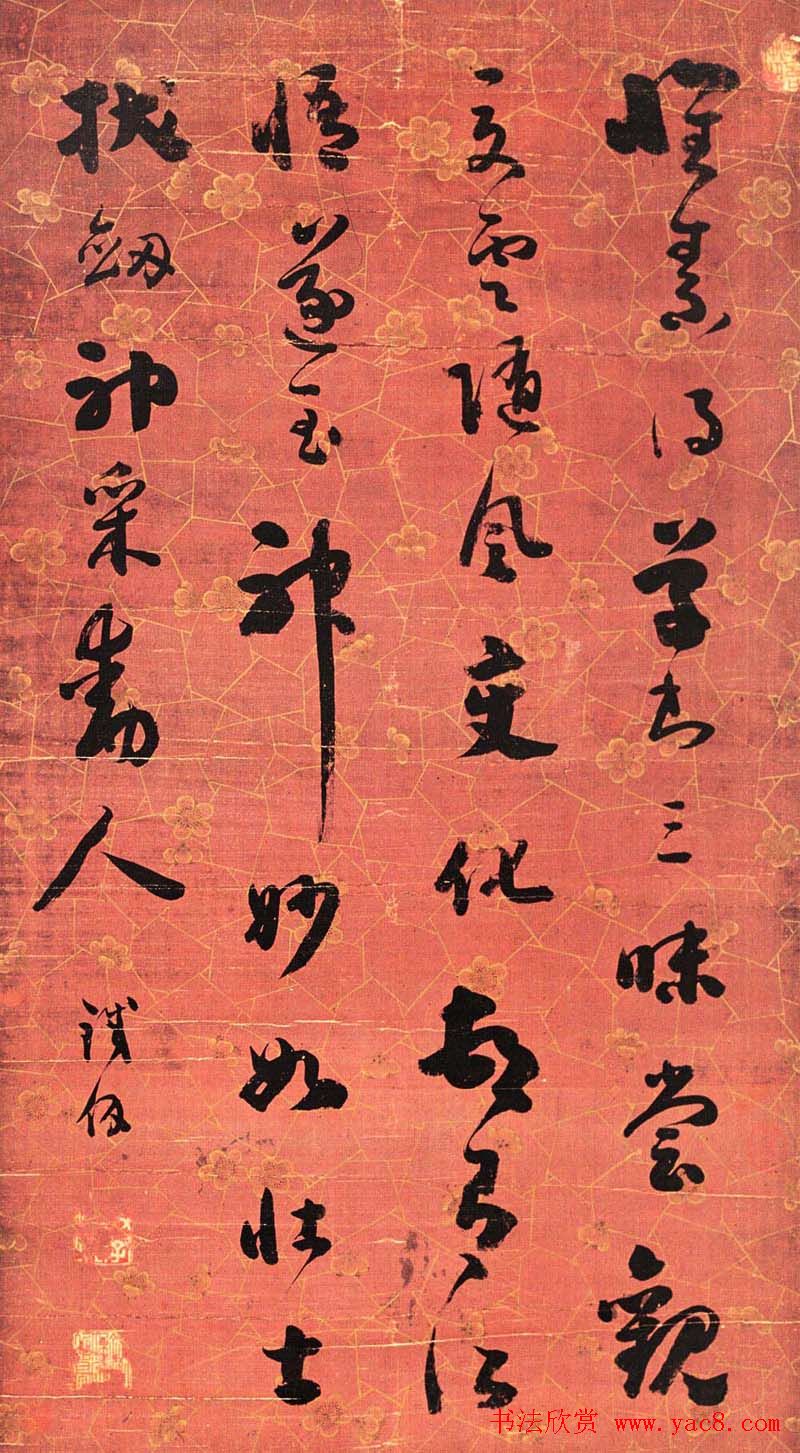 懷素得草書三昧嘗觀
夏雲隨風變化頓有所
悟遂至神妙如壯士
拔劒神采動人
鐵保
书法欣赏 www.yac8.com